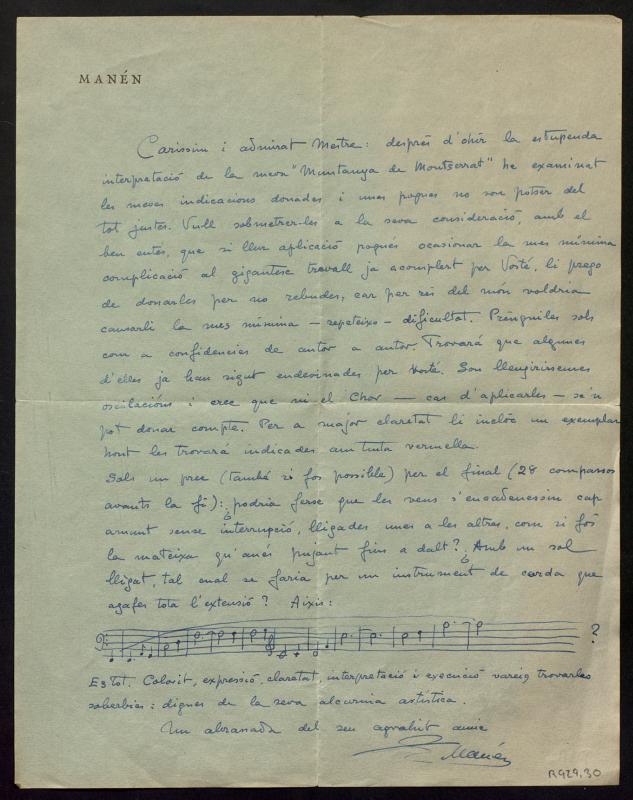 MANÉN
Caríssim i admirat Mestre: després d'ohir la estupenda
interpretació de la meva "Muntanya de Montserrat" he examinat
les meves indicacions donades i unes poques no son potser del
tot justes. Vull sobmetrer-les a la seva consideració, amb el
ben entés, que si llur aplicació pogués ocasionar la mes mínima
complicació al gigantesc travall ja acomplert per Vosté, li prego
de donarles per no rebudes, car per res del món voldria
causarli la mes mínima — repeteixo — dificultat. Prènguiles sols
com a confidencies de autor a autor. Trovará que algunes
d'elles ja han sigut endevinades per Vosté. Son lleugiríssimes
oscilacións i crec que ni el Chor — cas d'aplicarles — se'n
pot donar compte. Per a major claretat li incloc un exemplar
hont les trovará indicades am tinta vermella.
Sols un prec (també si fos possible) per el final (28 compassos
avants la fi): ¿podria ferse que les veus s'encadenessin cap
amunt sense interrupció, lligades unes a les altres, com si fós
la mateixa qu'anés pujant fins a dalt? ¿Amb un sol
lligat, tal cual se faria per un instrument de corda que
agafes tota l'extensió? Aixís:
?
Es tot. Colorit, expressió, claretat, interpretació i execució vareig trovarles
soberbies: dignes de la seva alcurnia artística.
Un abrassada del seu agrahit amic
Manén
R929.30